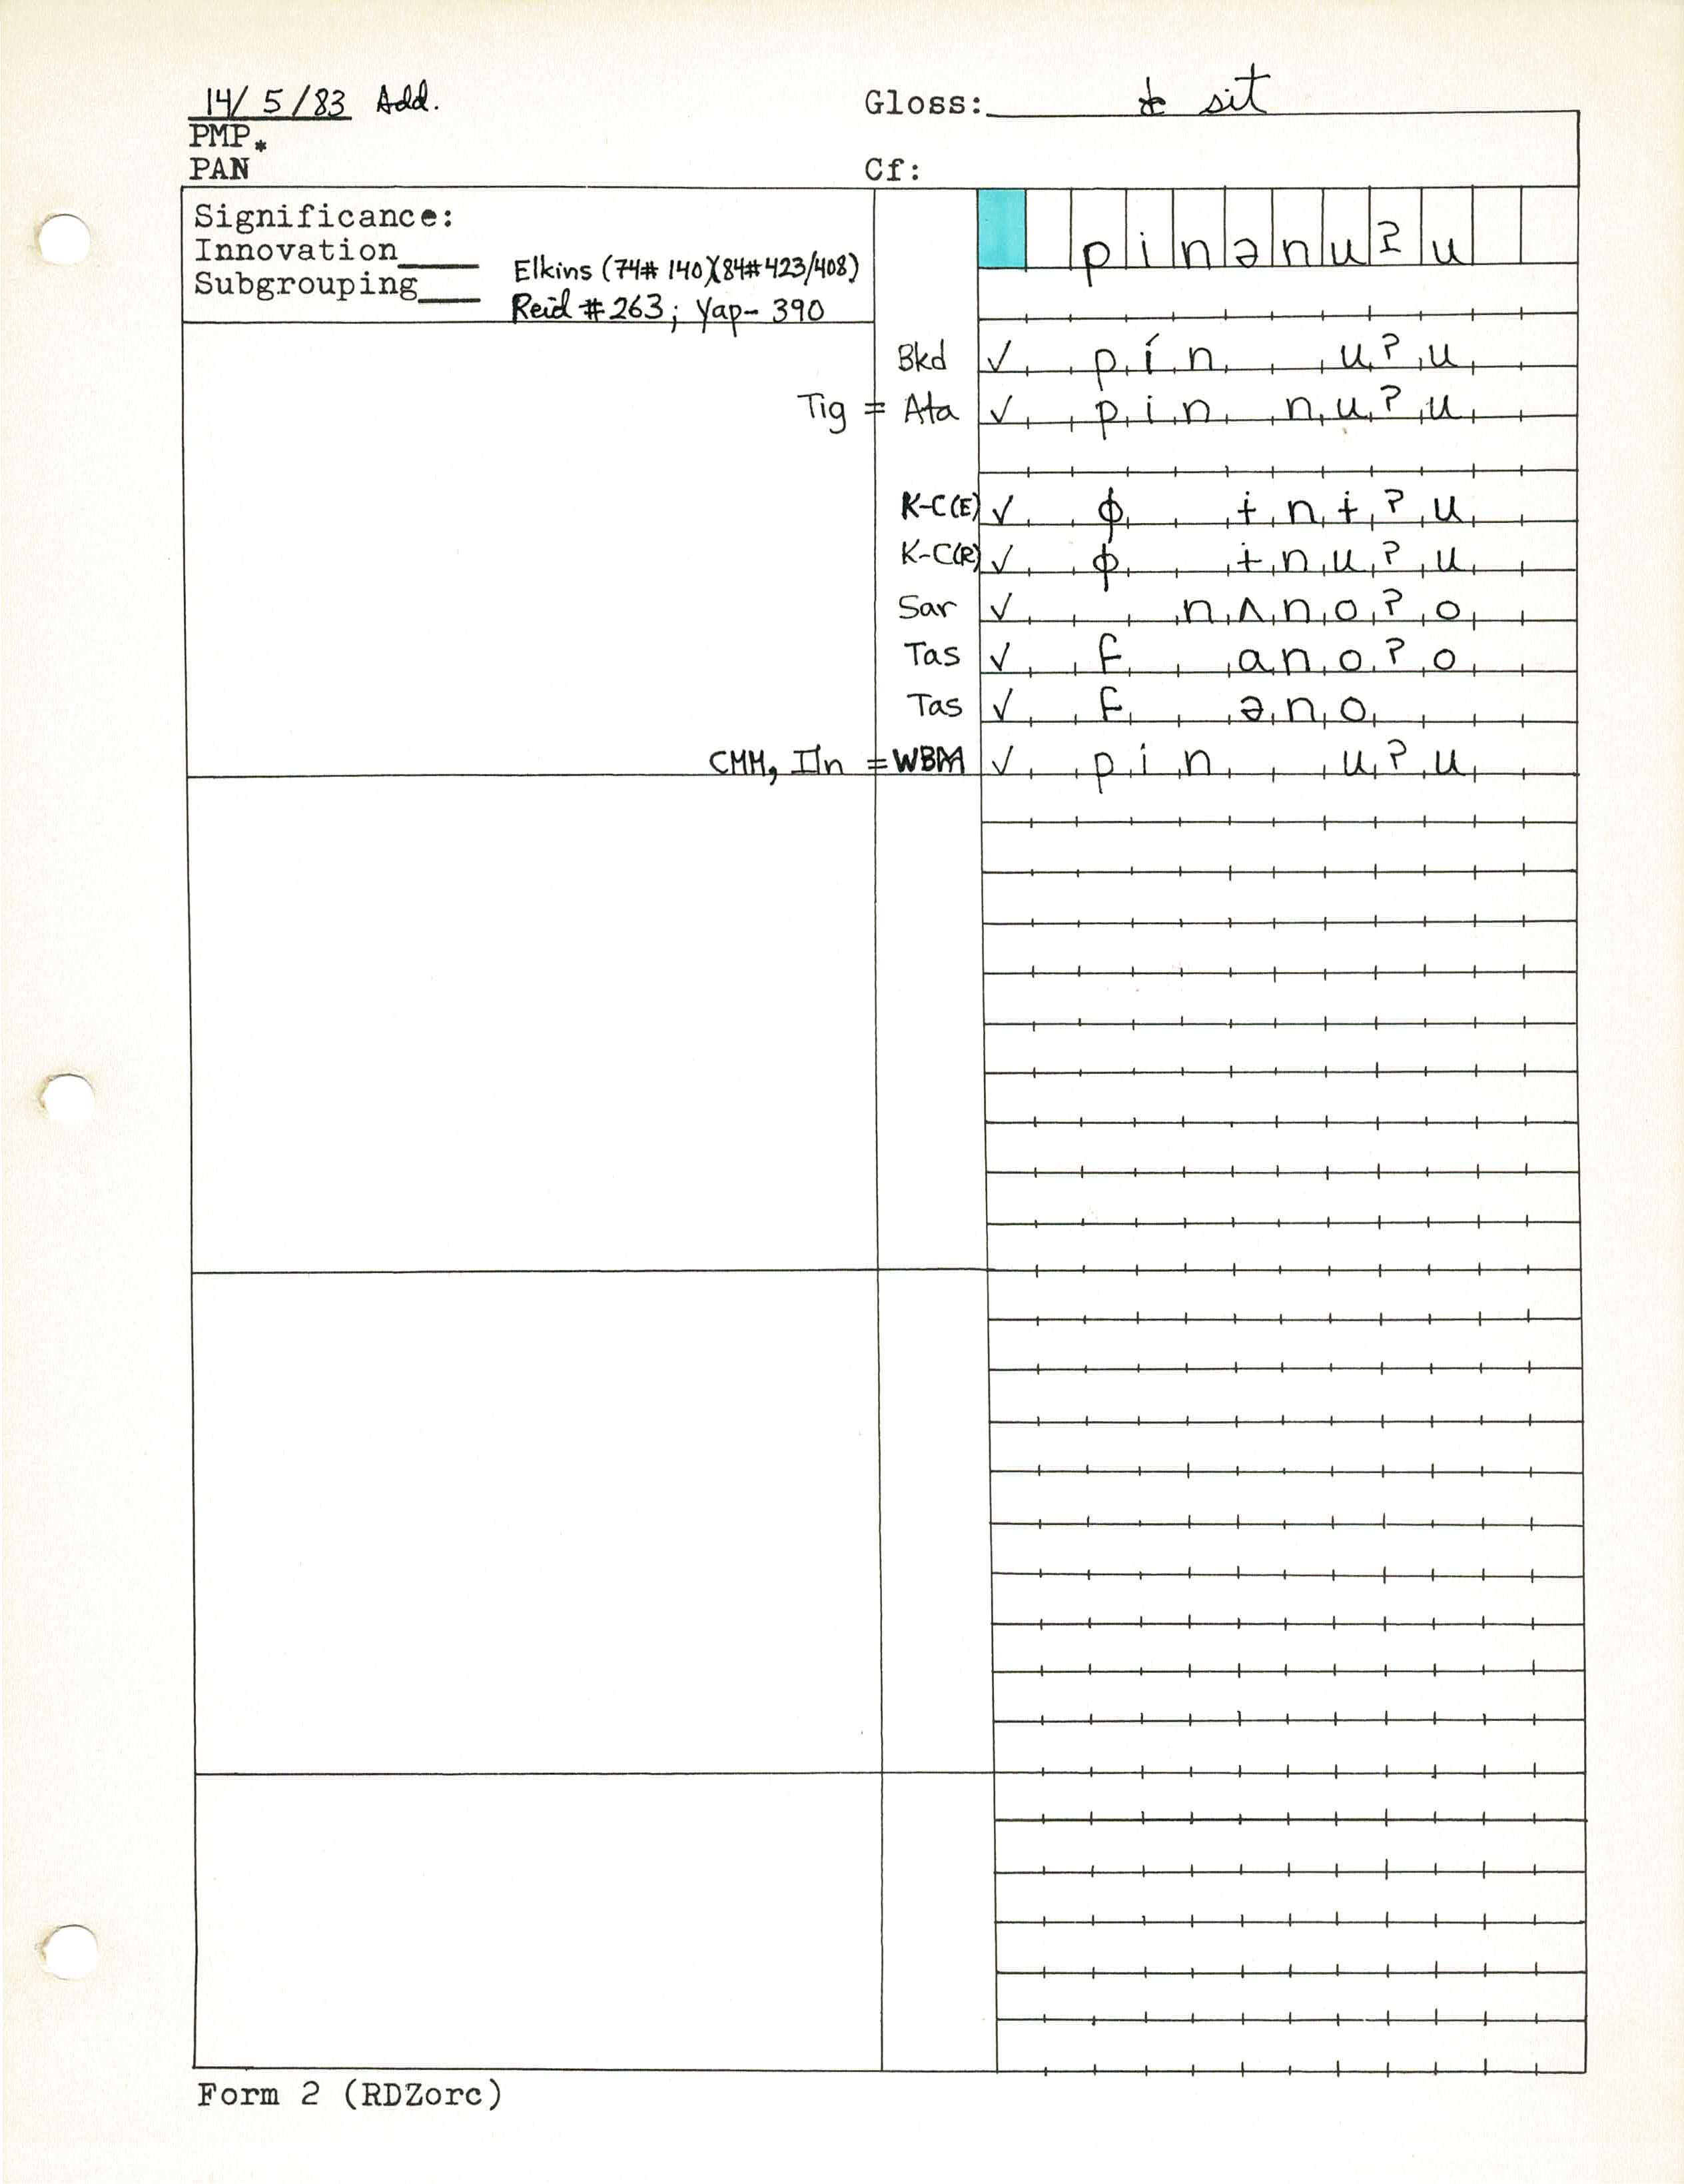 14/ 5 /83 Add.
Gloss: sit
PMP*
PAN
Cf:
Significance:
Innovation____
Subgrouping____
Elkins (74# 140)(84#423/408)
Reid #263; Yap- 390
pinənuʔu
Bkd ✓ pín uʔu
Tig = Ata ✓ pin nuʔu
K-C(E) ✓ ϕ ɨnɨʔu
K-C(R) ✓ ϕ ɨnuʔu
Sar ✓ nʌnoʔo
Tas ✓ f anoʔo
Tas ✓ f əno
CMM, Iln = WBM ✓ pin uʔu
Form 2 (RDZorc)